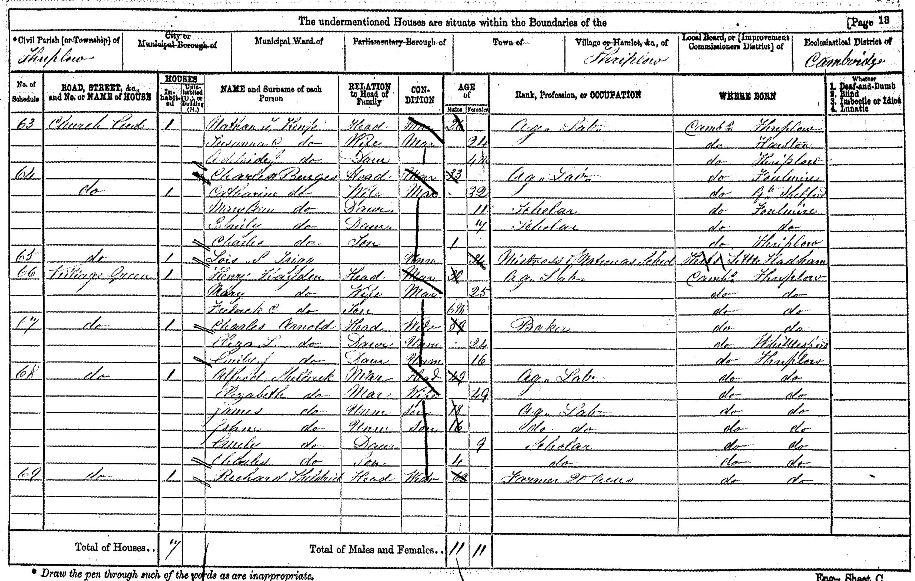 The undermentioned Houses are situate within the Boundaries of the [Page 18
*Civil Parish [or Township] of City or Municipal Borough of Municipal Ward of Parliamentary Borough of Town of Village or Hamlet, &c., of Local Board, or [Improvement Commissioners District] of Ecclesiastical District of
Thriplow Thriplow Cambridge
No. of Schedule ROAD, STREET, &c., and No. or NAME of HOUSE HOUSES Inhabited Uninhabited (U.), or Building (B.) NAME and Surname of each Person RELATION to Head of Family CONDITION AGE of Males Females Rank, Profession, or OCCUPATION WHERE BORN Whether 1. Deaf-and-Dumb 2. Blind 3. Imbecile or Idiot 4. Lunatic
63 Church 1 Head Mar Ag. Lab. Camb. Thriplow
Susanna do Wife Mar 24 do Harston
Adelaide do Daur do Thriplow
64 Charles Burges Head Mar 33 Ag. Lab. do Foulmire
do 1 Catharine do Wife Mar 32 do Gt. Shelford
Mary Ann do Daur 11 Scholar do Foulmire
Emily do Daur 7 Scholar do do
Charles do Son 1 do Thriplow
65 do 1 Unm Little Hadham
66 Green 1 Henry Head Mar 30 Ag. Lab. Camb. Thriplow
Mary do Wife Mar 25 do do
do Son do do
67 do 1 Charles Arnold Head Baker do do
Eliza do Daur Unm 24 do
Emily do Daur Unm 16 do Thriplow
68 do 1 Mar Head 49 Ag. Lab. do do
Elizabeth do Mar Wife 49 do do
James do Unm Son 18 Ag. Lab. do do
John do Unm Son 16 do do do do
Emily do Daur 9 Scholar do do
Charles do Son 4 do do do
69 do 1 Richard Head Farmer do do
Total of Houses.. 7 Total of Males and Females.. 11 11
* Draw the pen through such of the words as are inappropriate. Eng.—Sheet C.